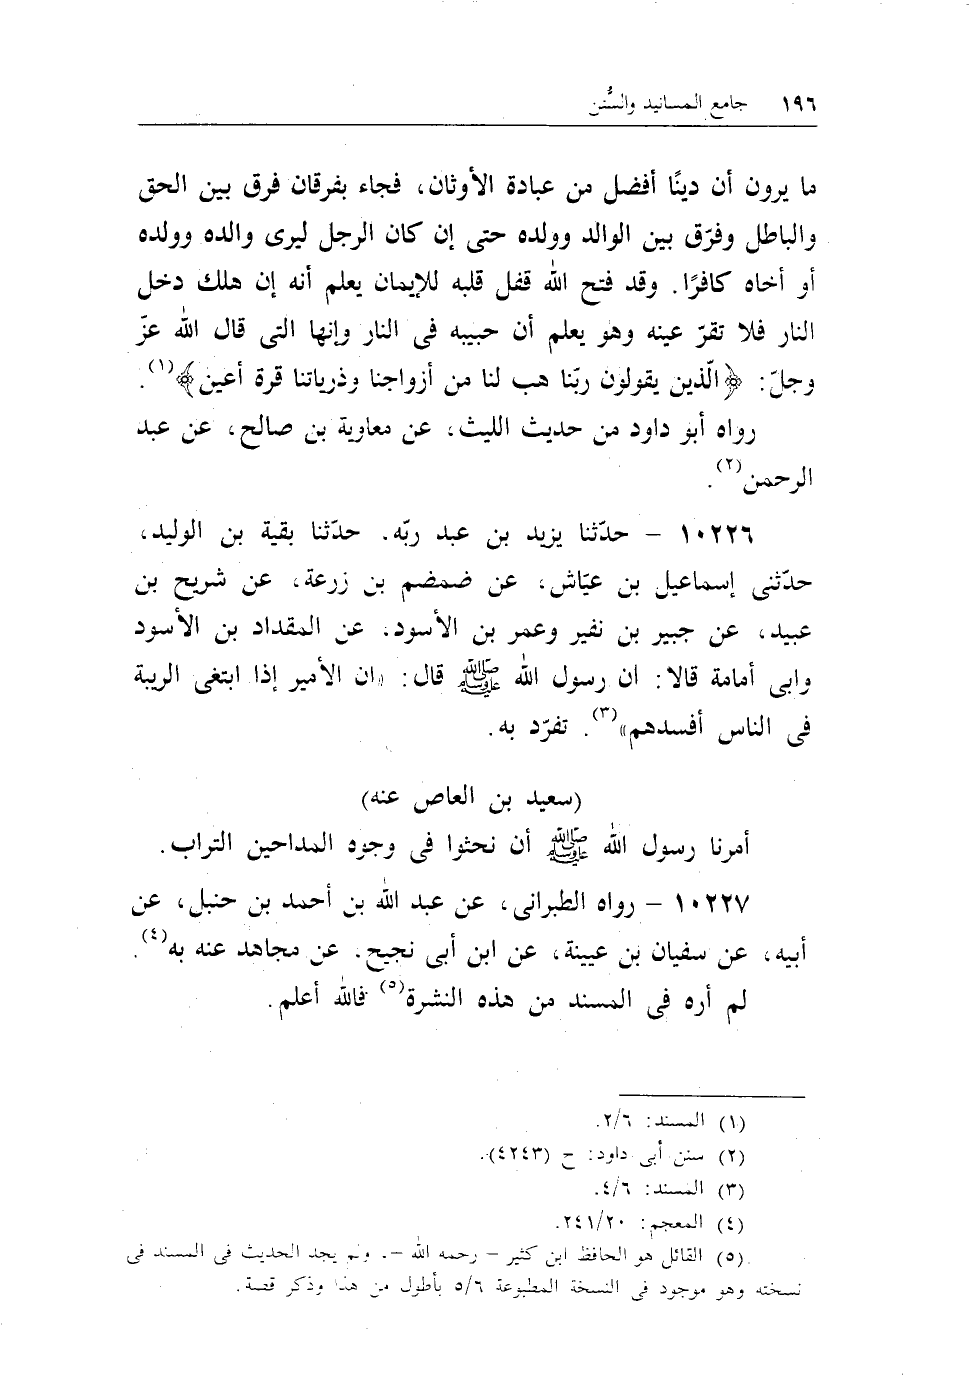 ١٩٦ جامع المسانيد والسُّنن
ما يرون أن دينًا أفضل من عبادة الأوثان، فجاء بفرقان فرق بين الحق
والباطل وفرّق بين الوالد وولده حتى إن كان الرجل ليرى والده وولده
أو أخاه كافرًا. وقد فتح الله قفل قلبه للإيمان يعلم أنه إن هلك دخل
النار فلا تقرّ عينه وهو يعلم أن حبيبه فى النار وإنها التى قال الله عزّ
وجلّ: ﴿الّذين يقولون ربّنا هب لنا من أزواجنا وذرياتنا قرة أعين﴾(١).
رواه أبو داود من حديث الليث، عن معاوية بن صالح، عن عبد
الرحمن(٢).
١٠٢٢٦ - حدّثنا يزيد بن عبد ربّه. حدّثنا بقية بن الوليد،
حدّثنى إسماعيل بن عيّاش، عن ضمضم بن زرعة، عن شريح بن
عبيد، عن جبير بن نفير وعمر بن الأسود. عن المقداد بن الأسود
وابى أمامة قالا: ان رسول الله ﷺ قال: «ان الأمير إذا ابتغى الريبة
فى الناس أفسدهم»(٣). تفرّد به.
(سعيد بن العاص عنه)
أمرنا رسول الله ﷺ أن نحثوا فى وجوه المداحين التراب.
١٠٢٢٧ - رواه الطبرانى، عن عبد الله بن أحمد بن حنبل، عن
أبيه، عن سفيان بن عيينة، عن ابن أبى نجيح. عن مجاهد عنه به(٤).
لم أره فى المسند من هذه النشرة(٥) فالله أعلم.
(١) المسند: ٢/٦.
(٢) سنن أبى داود: ح (٤٢٤٣).
(٣) المسند: ٤/٦.
(٤) المعجم: ٢٤١/٢٠.
(٥) القائل هو الحافظ ابن كثير - رحمه الله -. ولم يجد الحديث فى المسند فى
نسخته وهو موجود فى النسخة المطبوعة ٥/٦ بأطول من هذا وذكر قصة.